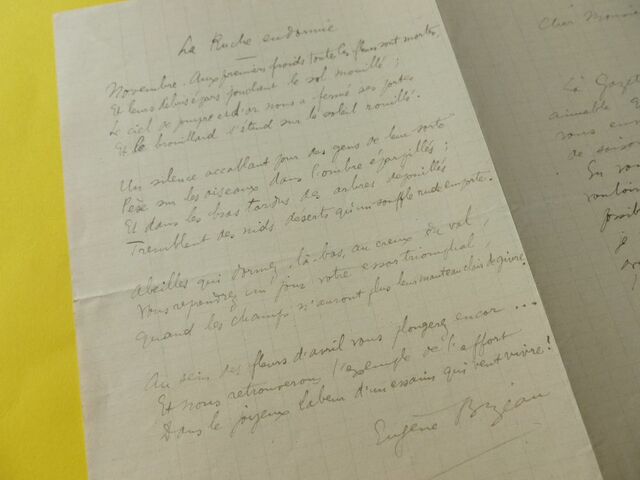 La Ruche endormie
Novembre. Aux premiers froids toutes les fleurs sont mortes,
Et leurs débris épars jonchant le sol mouillé ;
Le ciel de pourpre et d'or nous a fermé ses portes
Et le brouillard s'étend sur le soleil rouillé.
Un silence accablant pour des gens de leur sorte
Pèse sur les oiseaux dans l'ombre éparpillés ;
Et dans les bras tordus des arbres dépouillés
Tremblent des nids déserts qu'un souffle rude emporte.
Abeilles qui dormez là-bas, au creux du val,
Vous reprendrez un jour votre essor triomphal,
Quand les champs n'auront plus leur manteau clair de givre.
Au sein des fleurs d'avril vous plongerez encor...
Et nous retrouverons l'exemple de l'effort
Dans le joyeux labeur d'un essaim qui veut vivre !
Eugène Bizeau
Cher Monsieur
La
aimable
vous
de
En
vouloir
je